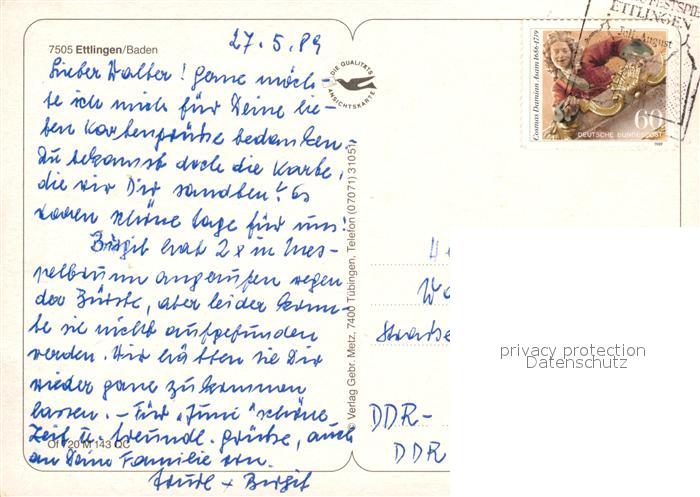 7505 Ettlingen/Baden
27.5.89
Lieber Walter! Gerne möch-
te ich mich für Deine lie-
ben Kartengrüße bedanken.
Du bekamst doch die Karte,
die wir Dir sandten? Es
waren schöne Tage für uns!
Birgit hat 2x in Mes-
pelbrunn angerufen wegen
der Bürste, aber leider konn-
te sie nicht aufgefunden
werden. Wir hätten sie Dir
wieder gerne zukommen
lassen. – Für "Juni" schöne
Zeit u. freundl. Grüße, auch
an Deine Familie von
+ Birgit
Of 720 M 143 QC
DIE QUALITÄTS
ANSICHTSKARTE
© Verlag Gebr. Metz, 7400 Tübingen, Telefon (07071) 31051
ETTLINGEN
Juli-August
Cosmas Damian Asam 1686-1739
60
DEUTSCHE BUNDESPOST
Straße
DDR-
DDR
privacy protection
Datenschutz